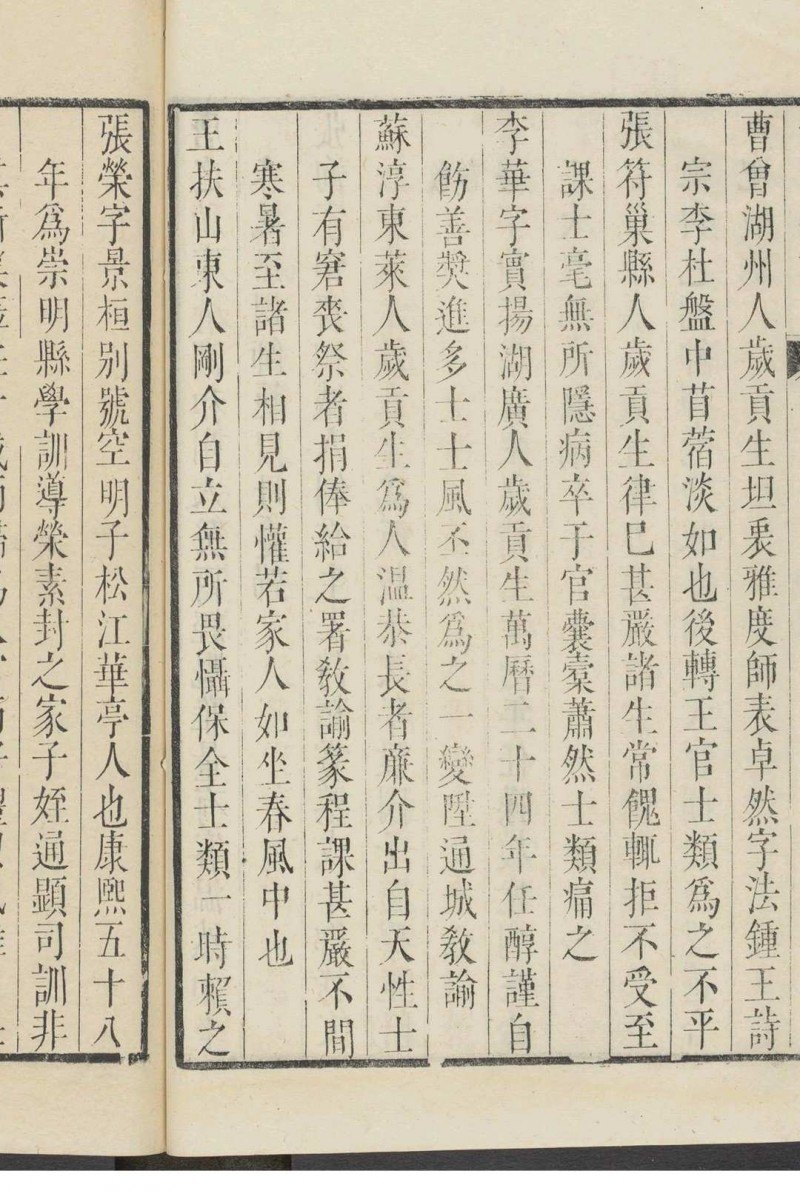 曹曾湖州人歲貢生坦衷雅度師表卓然字法鍾王詩
宗李杜盤中苜蓿淡如也後轉王官士類爲之不平
張符巢縣人歲貢生律巳甚嚴諸生常餽輒拒不受至
課士毫無所隱病卒于官囊橐蕭然士類痛之
李華字實揚湖廣人歲貢生萬曆二十四年任醇謹自
飭善奬進多士士風丕然爲之一變陞通城敎諭
蘇淳東萊人歲貢生爲人温恭長者廉介出自天性士
子有窘喪祭者捐俸給之署敎諭篆程課甚嚴不間
寒暑至諸生相見則懽若家人如坐春風中也
王扶山東人剛介自立無所畏懾保全士類一時賴之
張榮字景桓别號空明子松江華亭人也康熙五十八
年爲崇明縣學訓導榮素封之家子姪通顯司訓非